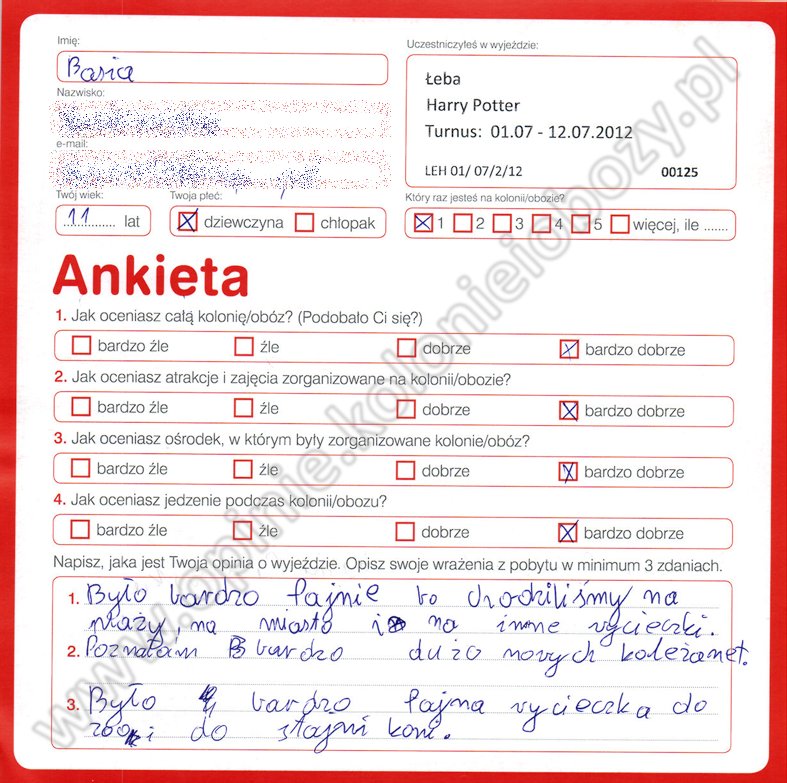 Imię:
Basia
Uczestniczyłeś w wyjeździe:
Łeba
Harry Potter
Turnus: 01.07 - 12.07.2012
LEH 01/ 07/2/12 00125
Nazwisko:
e-mail:
Twój wiek:
11 lat
Twoja płeć:
dziewczyna chłopak
Który raz jesteś na kolonii/obozie?
1 2 3 4 5 więcej, ile .......
Ankieta
1. Jak oceniasz całą kolonię/obóz? (Podobało Ci się?)
bardzo źle źle dobrze bardzo dobrze
2. Jak oceniasz atrakcje i zajęcia zorganizowane na kolonii/obozie?
bardzo źle źle dobrze bardzo dobrze
3. Jak oceniasz ośrodek, w którym były zorganizowane kolonie/obóz?
bardzo źle źle dobrze bardzo dobrze
4. Jak oceniasz jedzenie podczas kolonii/obozu?
bardzo źle źle dobrze bardzo dobrze
Napisz, jaka jest Twoja opinia o wyjeździe. Opisz swoje wrażenia z pobytu w minimum 3 zdaniach.
1. Było bardzo fajnie bo chodziliśmy na
plaży, na miasto i na inne wycieczki.
2. Poznałam bardzo dużo nowych koleżanet.
3. Było bardzo fajna wycieczka do
zoo i do stajni koni.
www.opinie.kolonieiobozy.pl